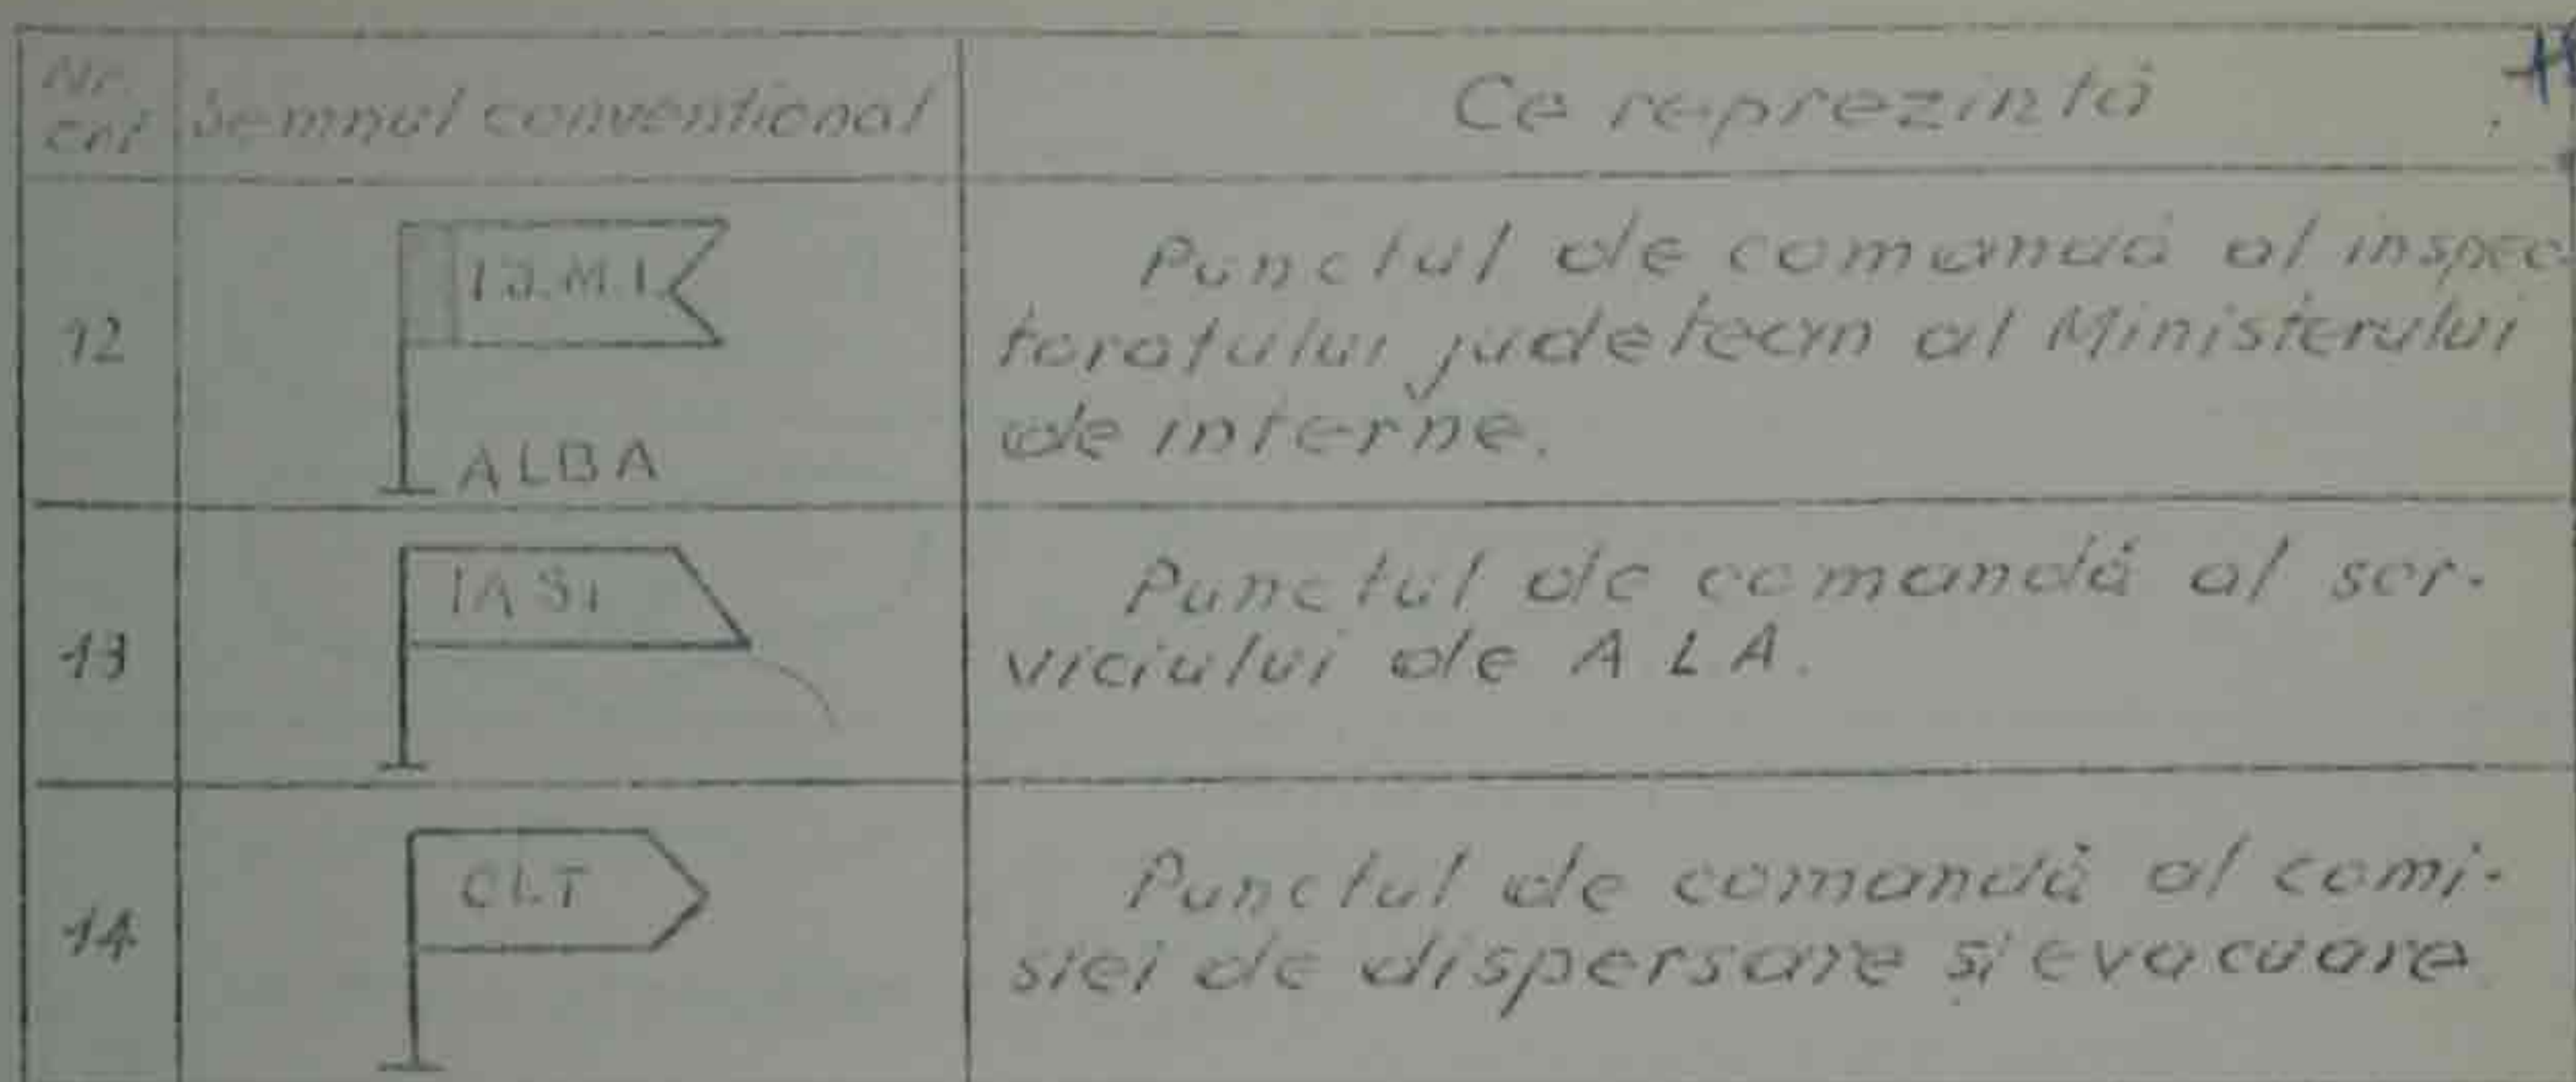 Nr.
crt.
Semnul conventional
Ce reprezintă
12
I.J.M.I.
ALBA
Punctul de comandă al inspec-
toratului judetean al Ministerului
de interne.
13
IASI
Punctul de comandă al ser-
viciului de A.L.A.
14
CLT
Punctul de comandă al comi-
siei de dispersare și evacuare